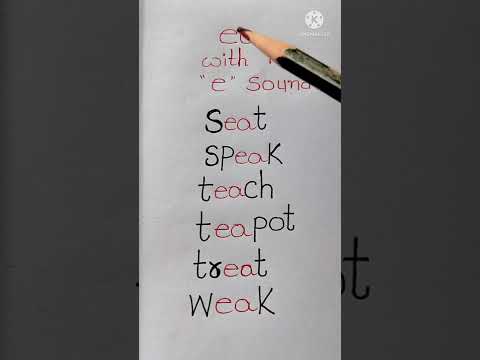 with
"e" Sound
Seat
Speak
teach
teapot
treat
weak